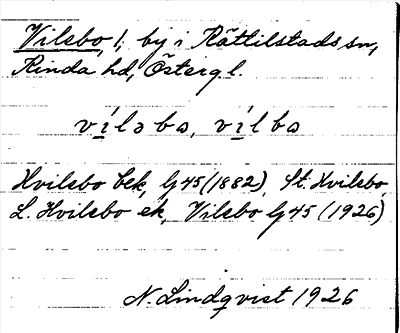 Vilsbo, l, by i Rättilstads sn,
Kinda hd, Östergl.
víləbo, vílbo
Hvilsbo bek, Gj 45 (1882), St. Hvilsbo,
L. Hvilsbo ek, Vilsbo Gj 45 (1926)
N. Lindqvist 1926